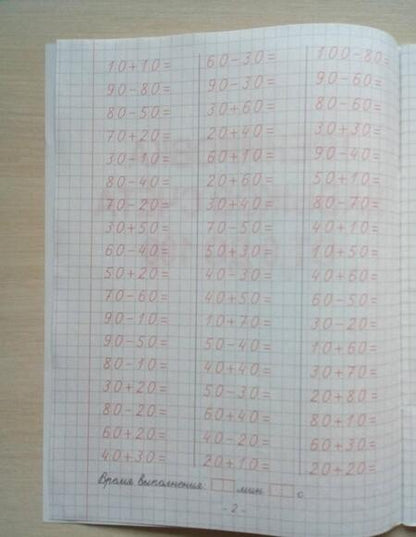 10+10=
90-80=
80-50=
70+20=
30-10=
80-40=
70-20=
30+50=
60-40=
50+20=
70-60=
90-10=
90-50=
80-10=
30+20=
80-20=
60+20=
40+30=
60-30=
90-30=
30+60=
20+40=
60+10=
20+60=
30+40=
70-50=
50+30=
40-30=
40+50=
10+70=
50-40=
40+40=
50-30=
60+40=
40-20=
20+10=
100-80=
90-60=
80-60=
30+30=
90-40=
50+10=
80-70=
40+10=
10+50=
40+60=
60-50=
30-20=
10+60=
30+70=
20+80=
80+10=
60+30=
20+20=
Время выполнения: мин. с
- 2 -